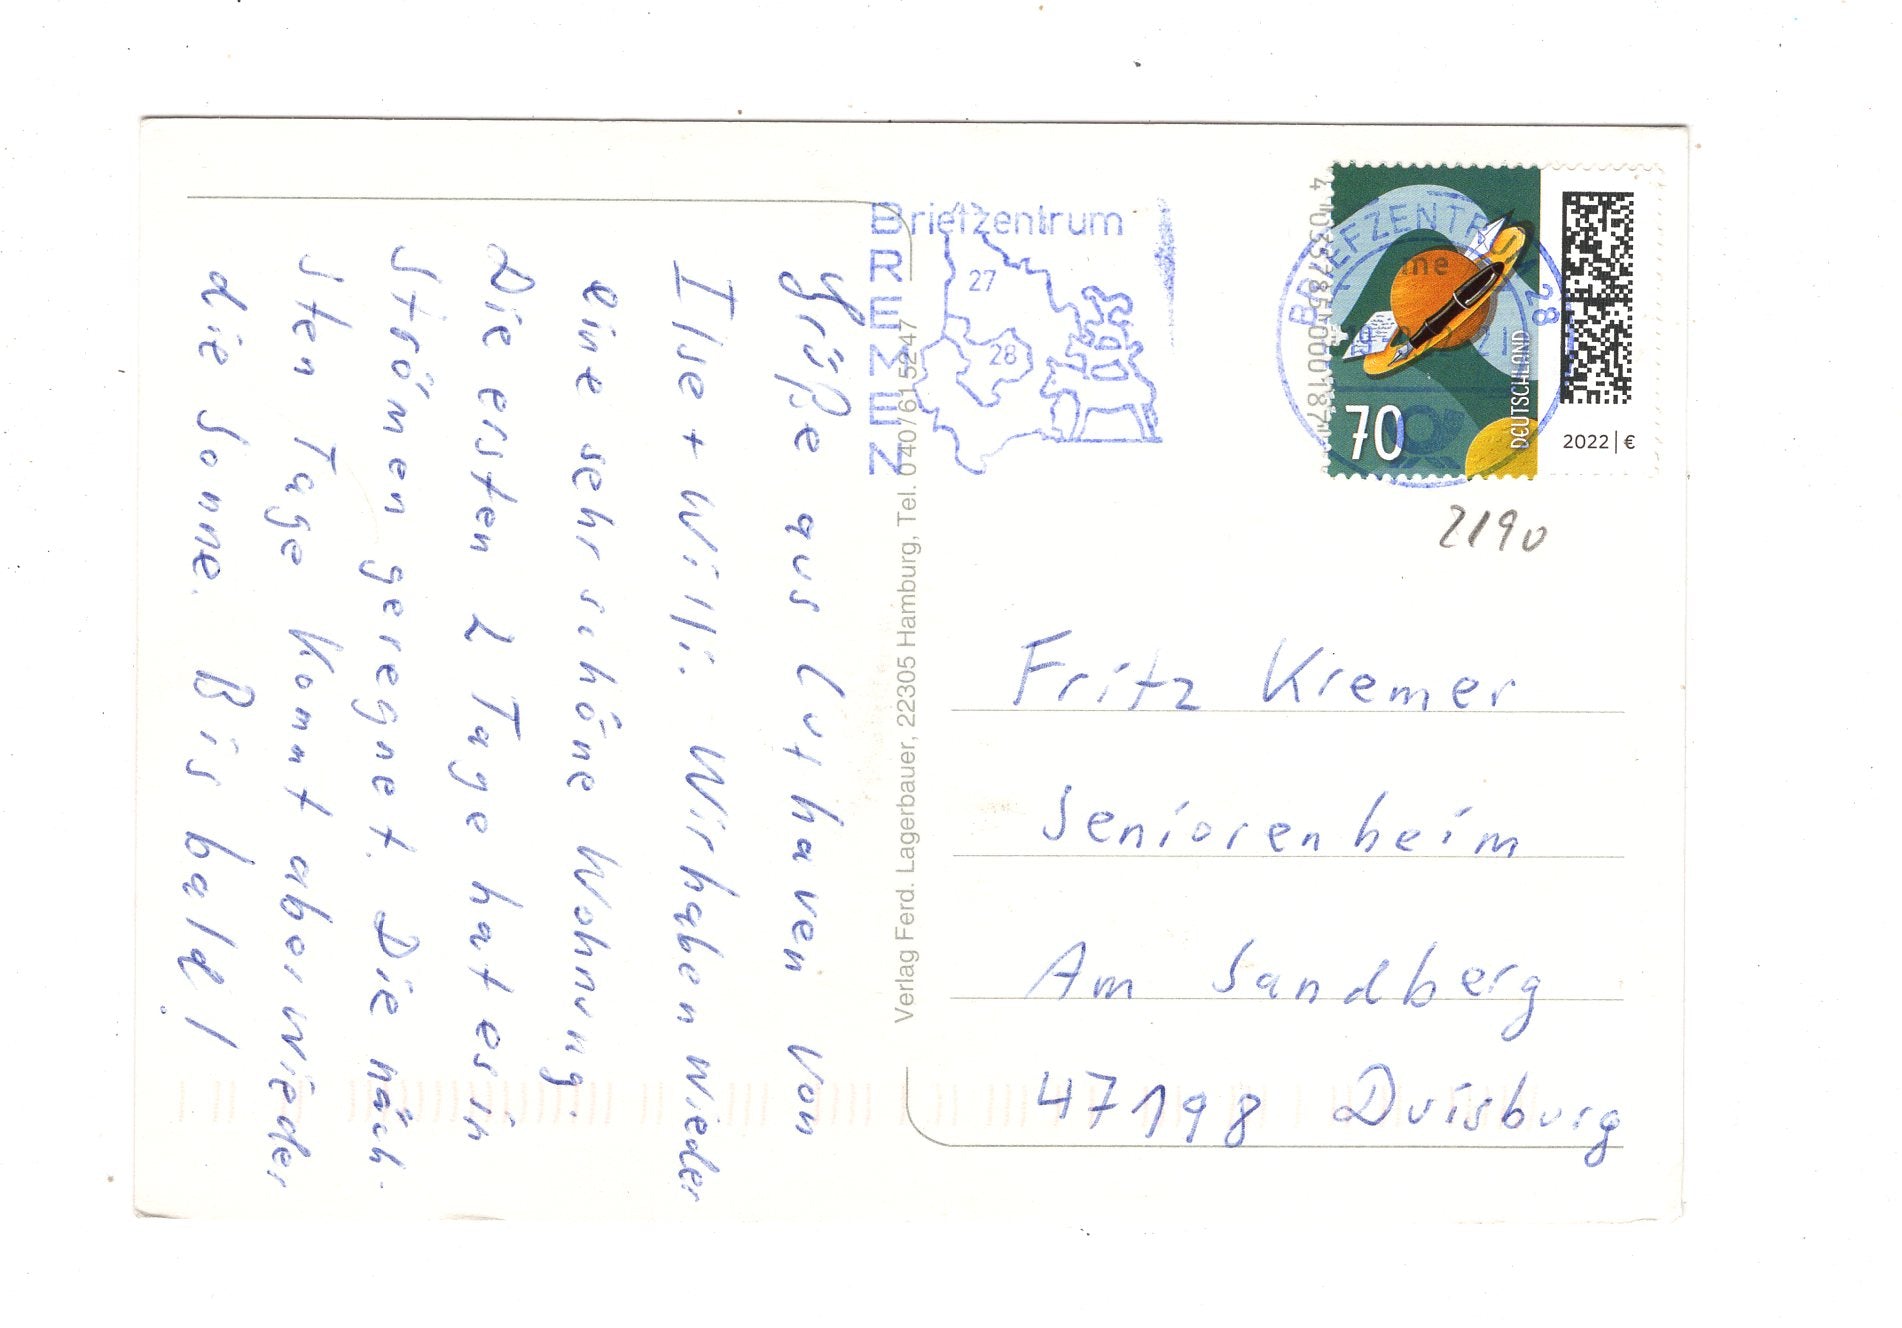 Grüße aus Cuxhaven von
Ilse + Willi. Wir haben wieder
eine sehr schöne Wohnung.
Die ersten 2 Tage hat es in
Strömen geregnet. Die näch-
sten Tage kommt aber wieder
die Sonne. Bis bald!
Verlag Ferd. Lagerbauer, 22305 Hamburg, Tel. 040/61 5247
Briefzentrum
BREMEN
27
28
BRIEFZENTRUM 28
70
DEUTSCHLAND
2022 | €
2190
Fritz Kremer
Seniorenheim
Am Sandberg
47198 Duisburg